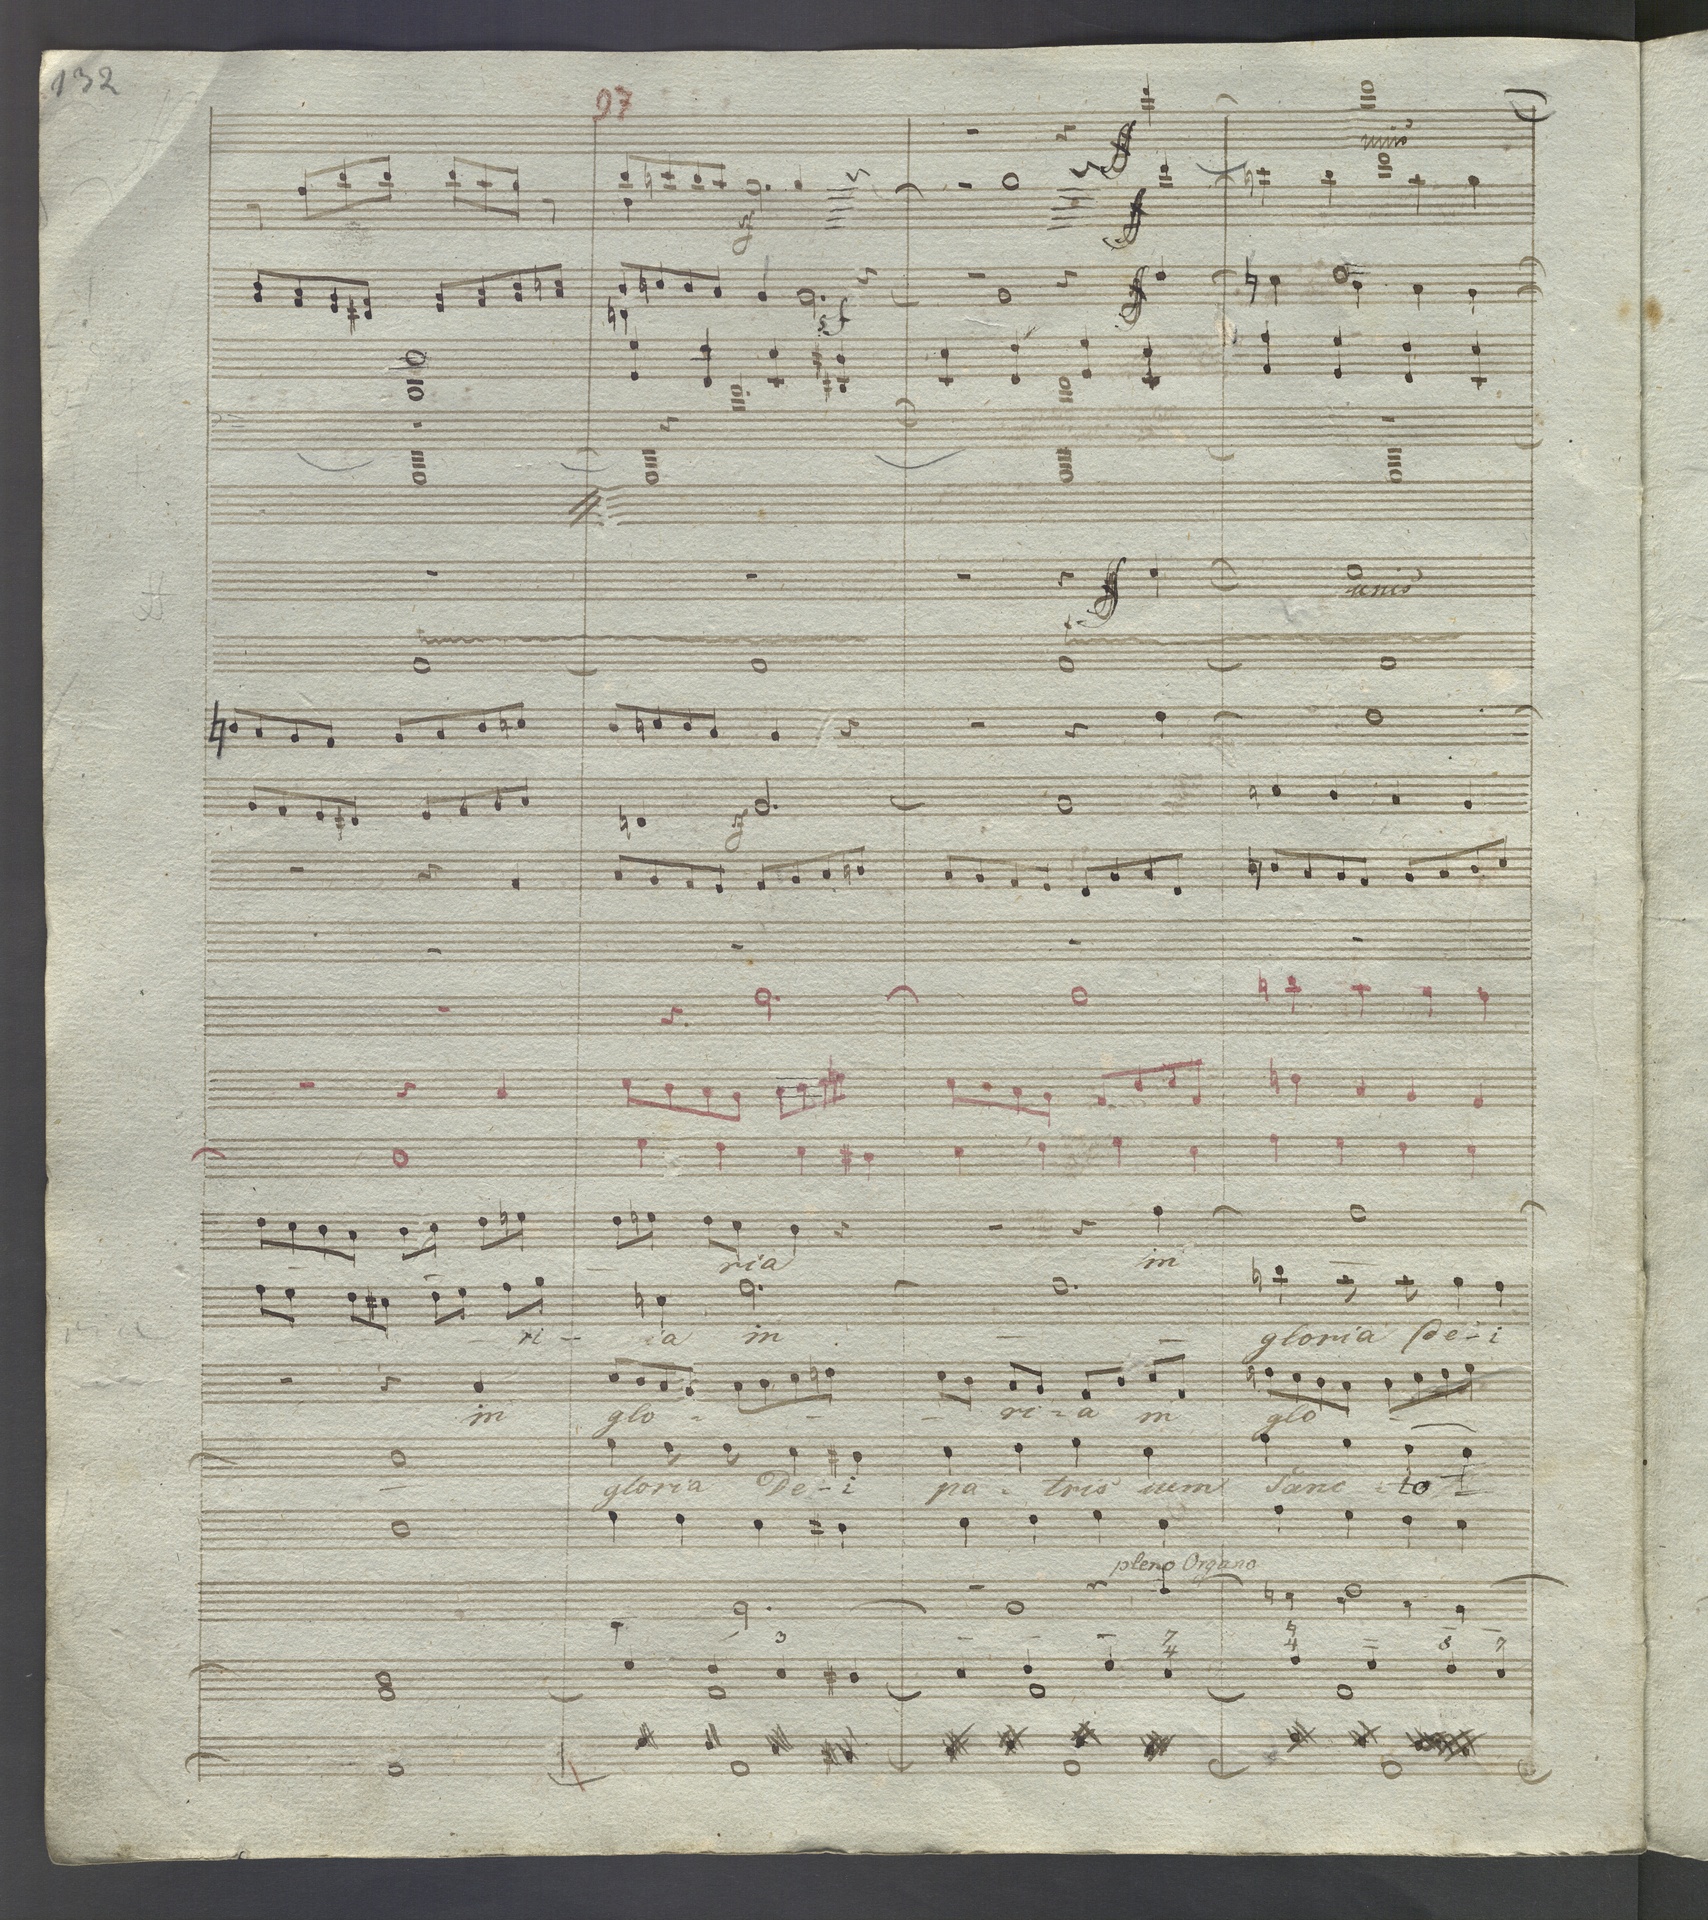 132
97
unis
sf
ff
ff
sf
ff
ff
unis
sf
ria in
ri - ia in gloria De - i
in glo - - - ri - a in glo -
gloria De - i pa - tris cum Sanc - to
pleno Organo
3 7 4 4 8 7